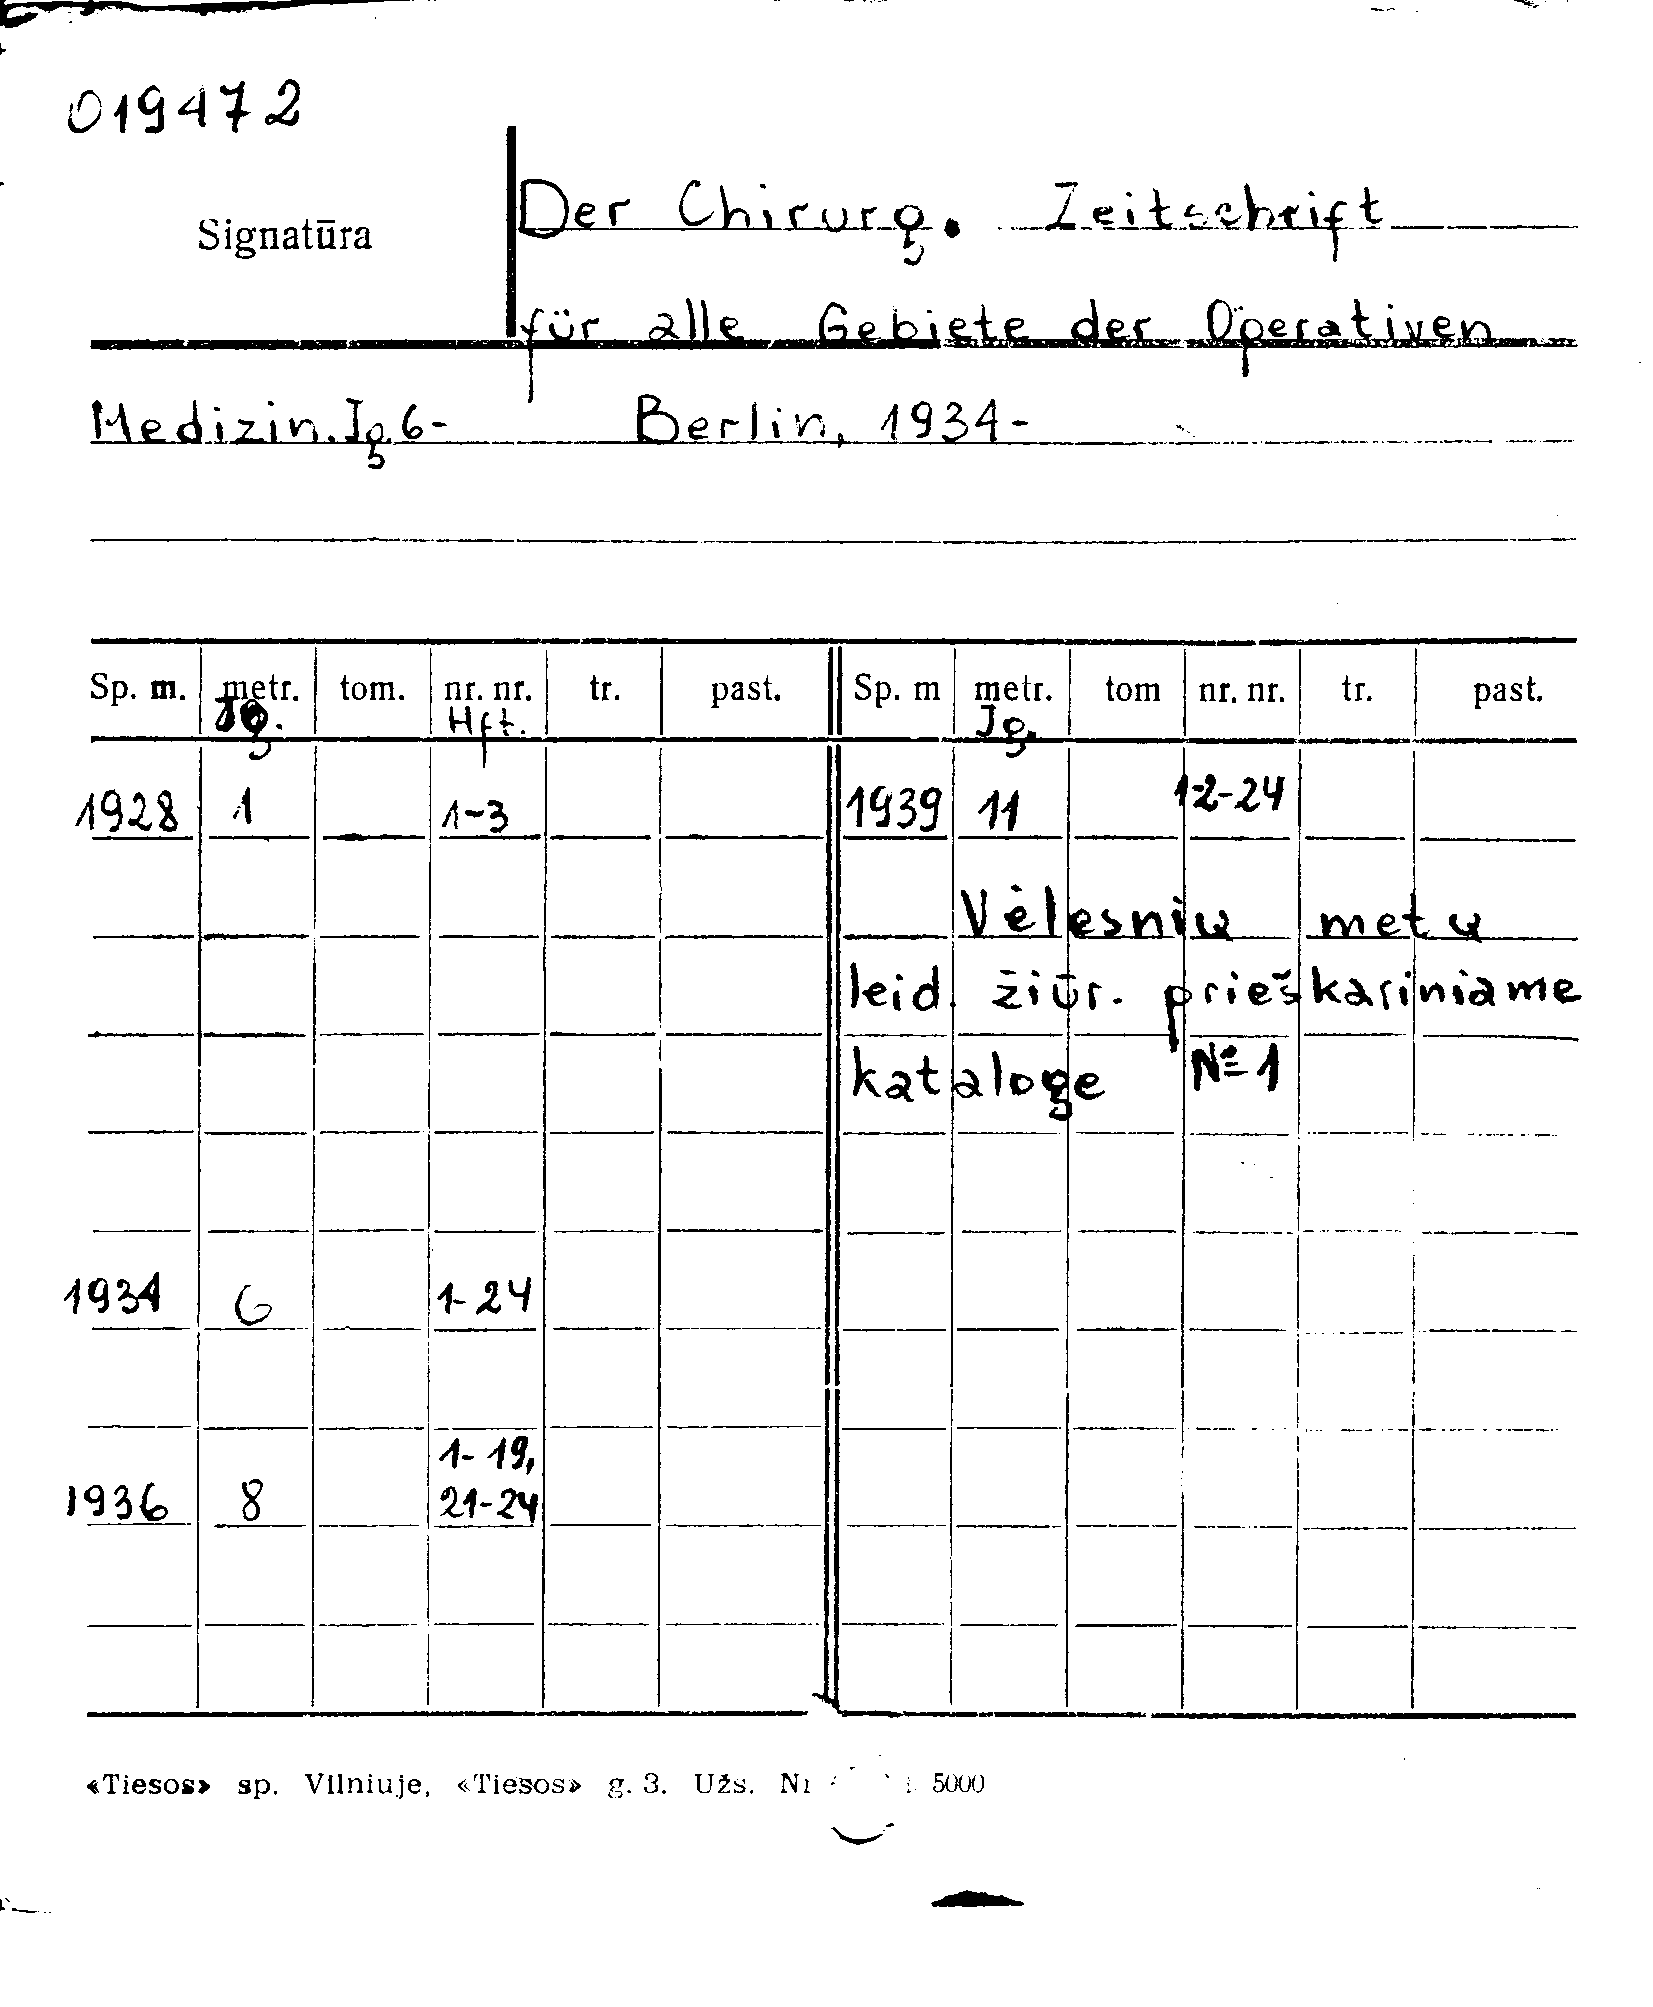 019472
Signatūra
Der Chirurg. Zeitschrift
für alle Gebiete der Operativen
Medizin. Jg. 6- Berlin, 1934-
Sp. m. metr. tom. nr. nr. tr. past. Sp. m metr. tom nr. nr. tr. past.
Jg. Hft. Jg.
1928 1 1-3 1939 11 1-2-24
Vėlesnių metų
leid. žiūr. prieškariniame
kataloge № 1
1934 6 1-24
1-19,
1936 8 21-24
«Tiesos» sp. Vilniuje, «Tiesos» g. 3. Užs. Nr 5000